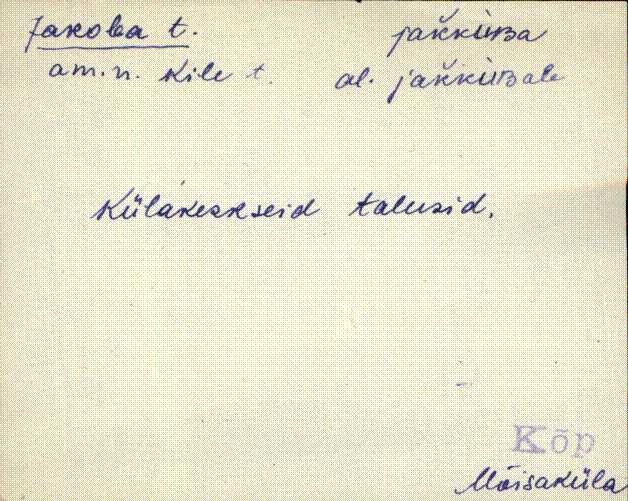 Jakoba t. jakkuʙa
am.n. Kile t. al. jakkuʙale
Külakeskseid talusid.
Kõp
Mõisaküla